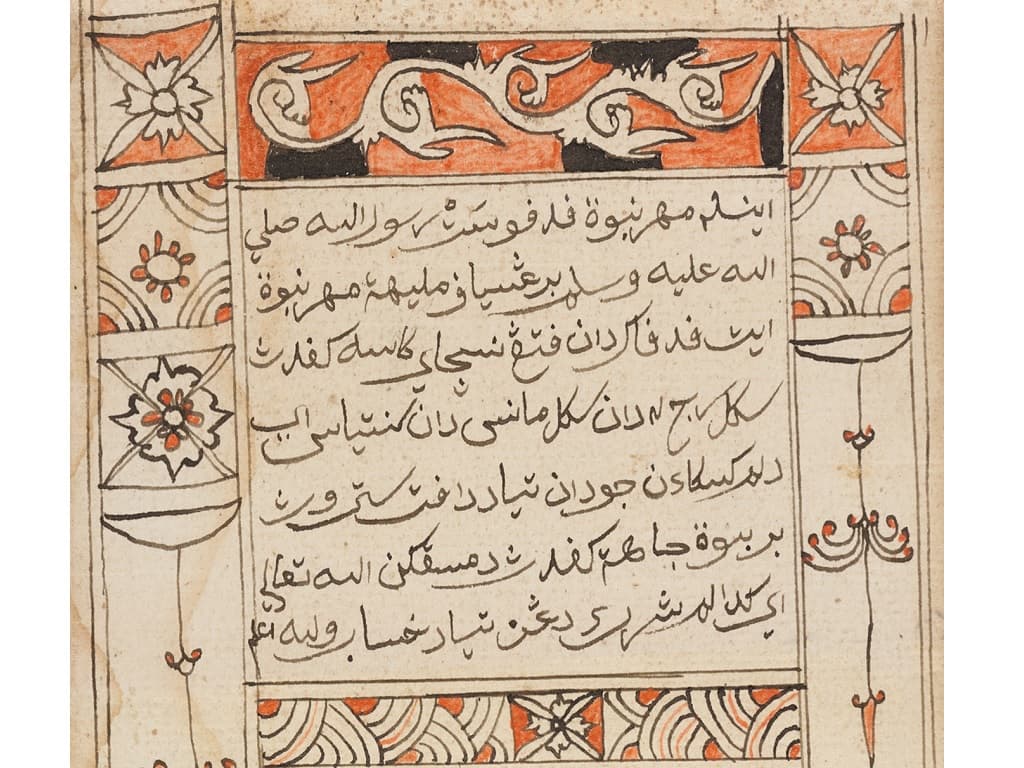 اينله مهر نبوة فد فوست رسول الله صلي
الله عليه وسلم برڠسياف مليهة مهر نبوة
ايت فد فاكي دان فتڠ نسچاي كاسه كفدث
سكل راج٢ دان سكل مانسى دان
دالم كسكاءن جو دان تياد دافت ستروث
بربوة جاهة كفدث دمسقكن الله تعالى
اي كدالم شركى دڠن تياد خساب والله اعلم